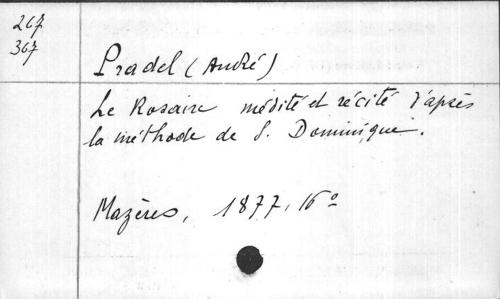 267
367
Pradel (André)
Le Rosaire médité et récité d'après
la méthode de S. Dominique.
Mazères, 1877, 16º